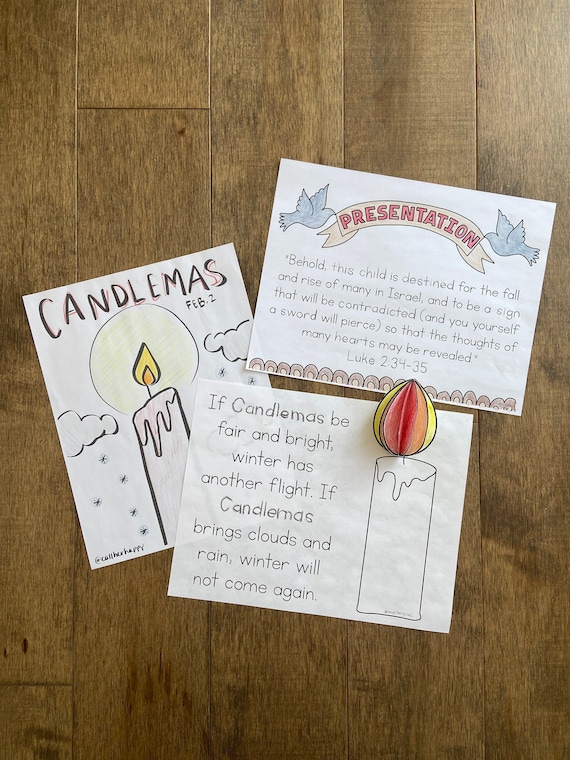 CANDLEMAS
FEB. 2
@callherhappy
PRESENTATION
"Behold, this child is destined for the fall
and rise of many in Israel, and to be a sign
that will be contradicted (and you yourself
a sword will pierce) so that the thoughts of
many hearts may be revealed."
Luke 2:34-35
If Candlemas be
fair and bright,
winter has
another flight. If
Candlemas
brings clouds and
rain, winter will
not come again.